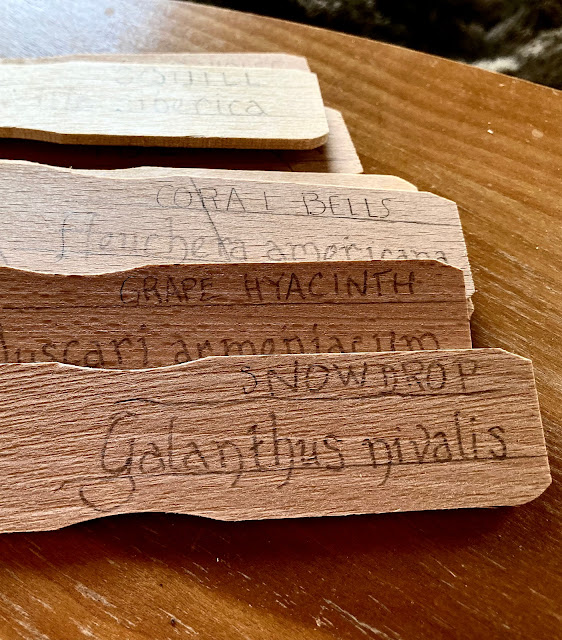 SQUILL
siberica
CORAL BELLS
Heuchera americana
GRAPE HYACINTH
Muscari armeniacum
SNOWDROP
Galanthus nivalis